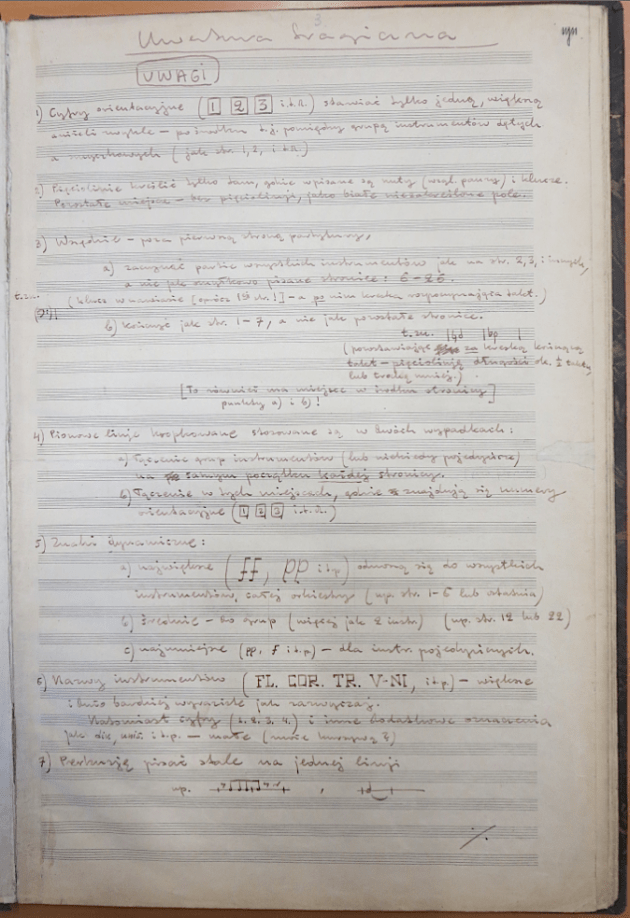 3
Uwertura tragiczna
UWAGI
1) Cyfry orientacyjne (1 2 3 i.t.d.) stawiać tylko jedną, większą
aniżeli zwykle – po środku t.j. pomiędzy grupą instrumentów dętych
a smyczkowych (jak str. 1, 2, i t.d.)
2) Pięciolinie kreślić tylko tam, gdzie wpisane są nuty (wzgl. pauzy) i klucze.
Pozostałe miejsce – bez pięciolinji, jako białe niezakreślone pole.
3) Wszędzie – poza pierwszą stroną partytury,
a) zaczynać partie wszystkich instrumentów jak na str. 2, 3, i innych,
a nie jak omyłkowo pisane stronice: 6-26.
t.zn. (klucz w nawiasie [oprócz 19 str.!] – a po nim kreska rozpoczynająca takt.)
b) kończyć jak str. 1-7, a nie jak pozostałe stronice.
t.zn.
(pozostawiając za kreską kończącą
takt – pięciolinję długości ok. ½ taktu
lub trochę mniej.)
[To również ma miejsce w środku stronicy]
punkty a) i b)!
4) Pionowe linje kropkowane stosowane są w dwóch wypadkach:
a) łączenie grup instrumentów (lub niekiedy pojedyńcze)
na samym początku każdej stronicy.
b) łączenie w tych miejscach, gdzie znajdują się numery
orientacyjne (1 2 3 i.t.d.)
5) Znaki dynamiczne:
a) największe (ff, pp i t.p.) odnoszą się do wszystkich
instrumentów, całej orkiestry (np. str. 1-6 lub ostatnia)
b) średnie – do grup (więcej jak 2 instr.) (np. str. 12 lub 22)
c) najmniejsze (pp, f i t.p.) – dla instr. pojedyńczych.
6) Nazwy instrumentów (FL. COR. TR. V-NI, i t.p.) – większe
i dużo bardziej wyraziste jak zazwyczaj.
Natomiast cyfry (1. 2. 3. 4.) i inne dodatkowe oznaczenia
jak div, uniś i t.p. – małe
7) Perkusję pisać stale na jednej linji
np. ,